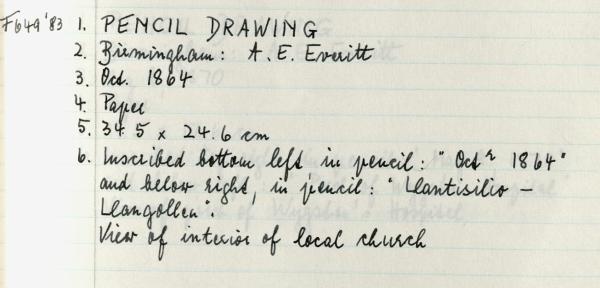 F649'83 1. PENCIL DRAWING
2. Birmingham: A. E. Everitt
3. Oct. 1864
4. Paper
5. 34.5 x 24.6 cm
6. Inscribed bottom left in pencil: "Octr 1864"
and below right, in pencil: "Llantisilio –
Llangollen".
View of interior of local church